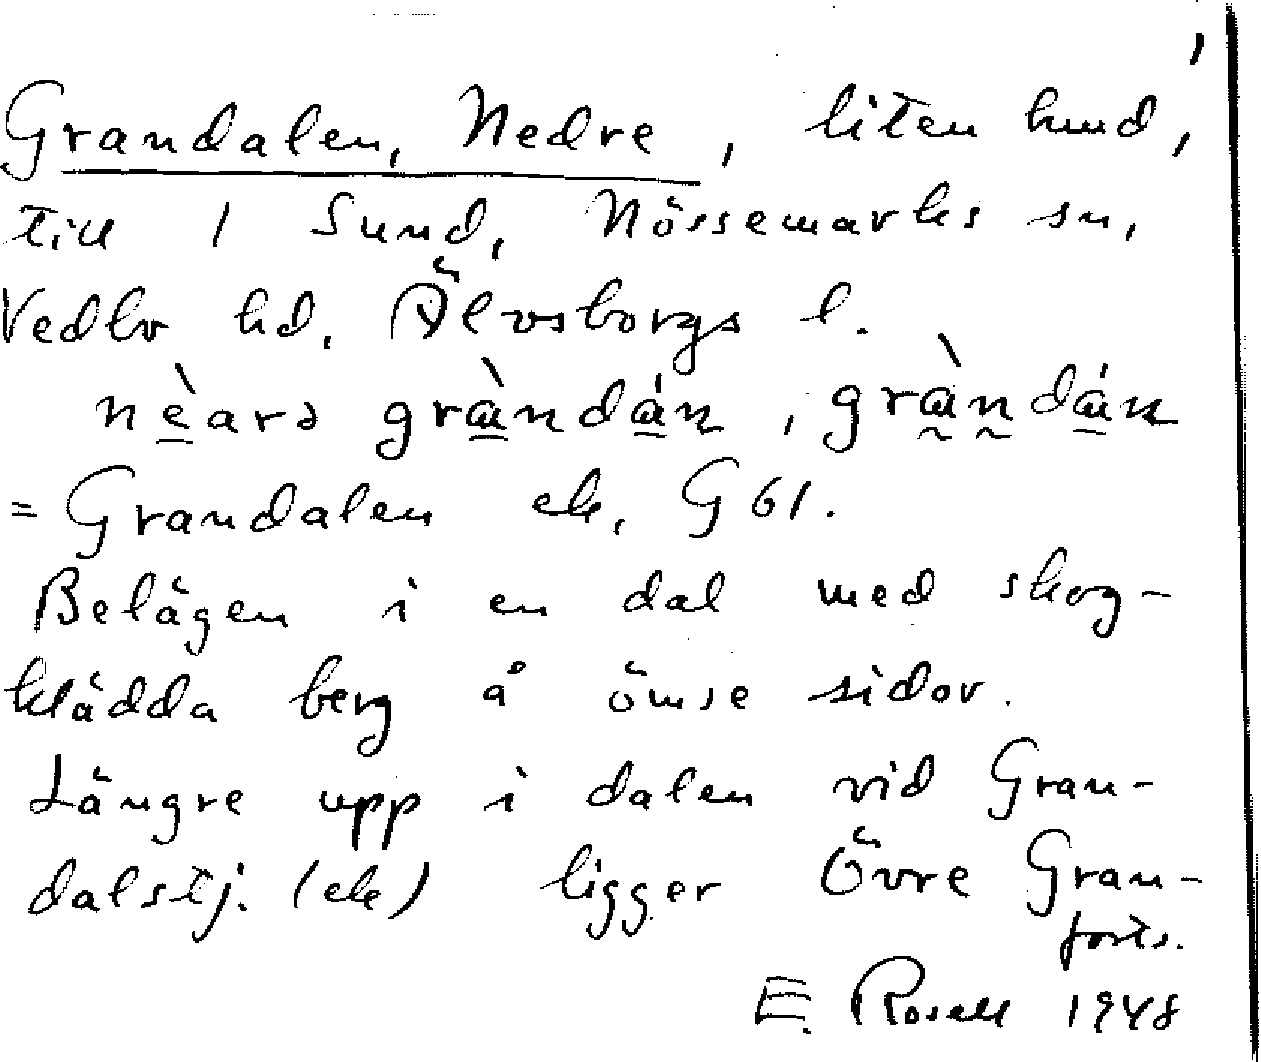 Grandalen, Nedre, liten hmd,
till 1 Sund, Nössemarks sn,
Vedbo hd, Älvsborgs l.
nèarə gràndán, gràndán
= Grandalen ek, G 61.
Belägen i en dal med skog-
klädda berg å ömse sidor.
Längre upp i dalen vid Gran-
dalstj. (ek) ligger Övre Gran-
forts.
E. Rosell 1948